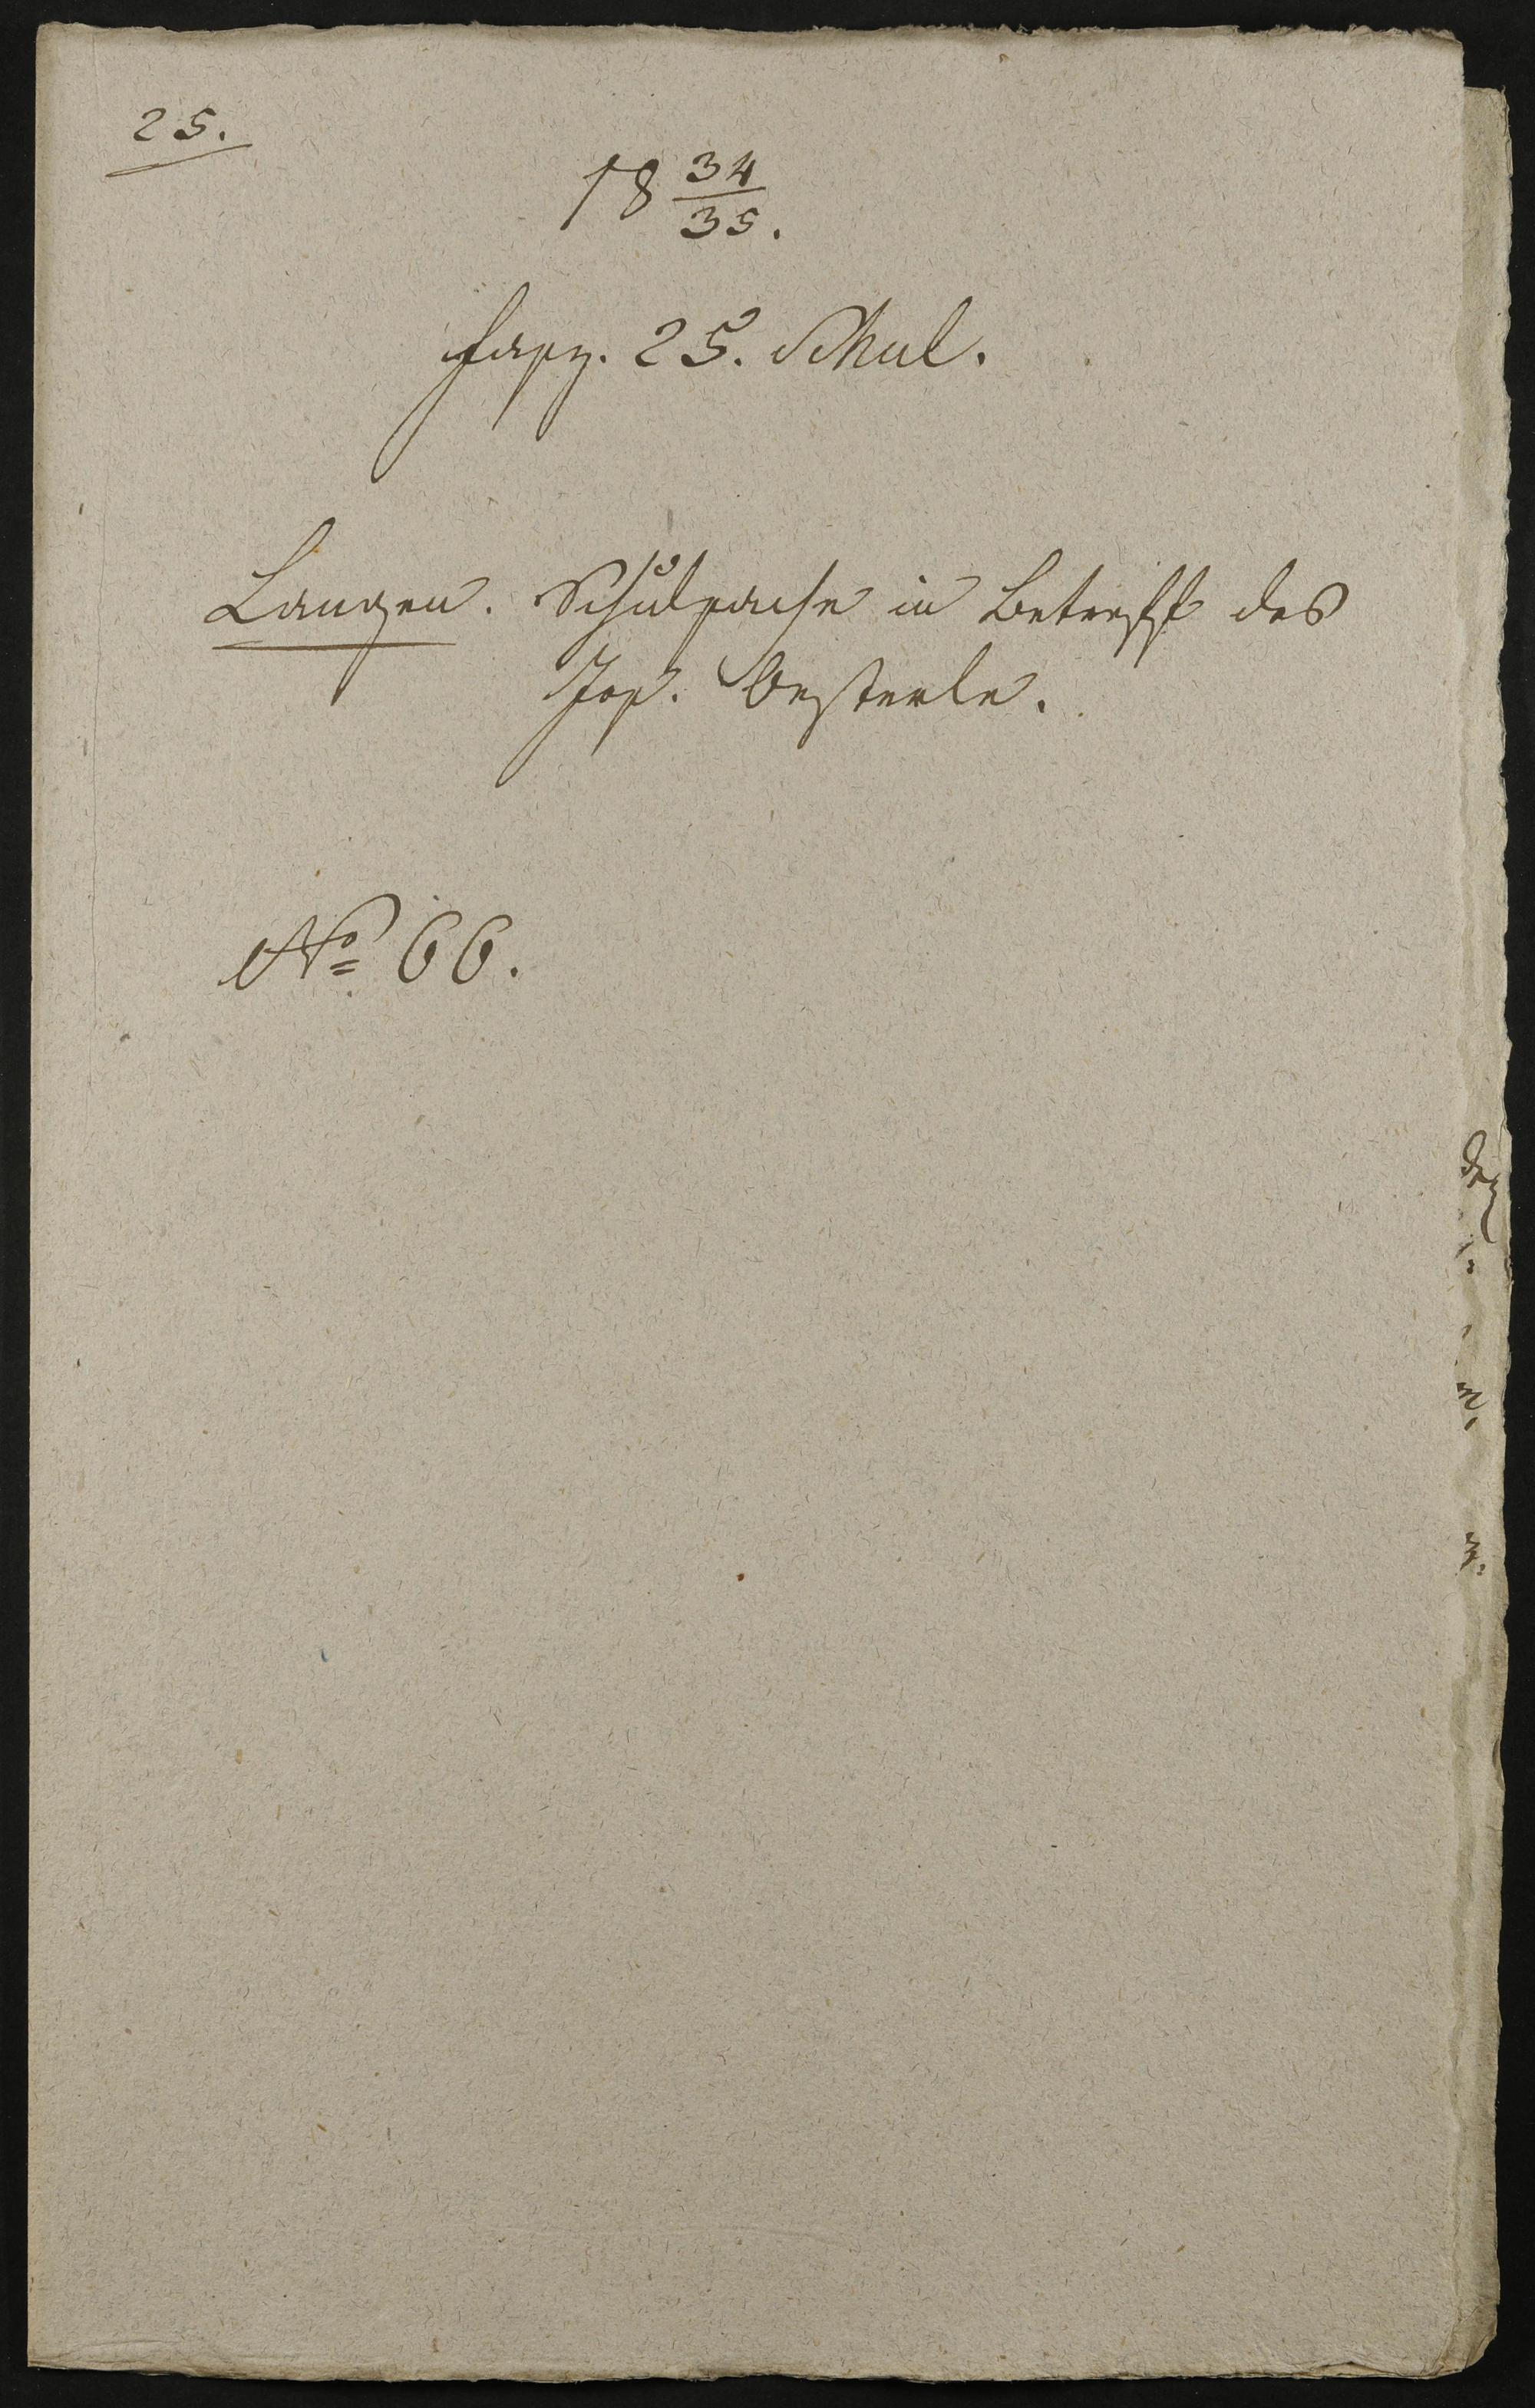 25.
18 34/35.
Fasz. 25. Schul.
Langen. Schulsache in Betreff des
Jos. Oesterle.
No 66.